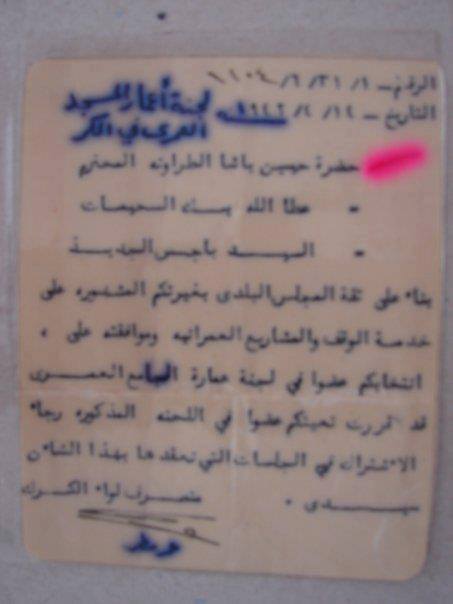 الرقم - ١ / ٣١ / ٦ / ١١٠٤
التاريخ - ١٤ / ٢ / ١٩٤٢
لجنة أعمار المسجد
العمري في الكرك
حضرة حسين باشا الطراونه المحترم
- عطا الله السحيمات
- السيد
بناء على ثقة المجلس البلدى بغيرتكم المشهوره على
خدمة الوقف والمشاريع العمرانيه وموافقته على
انتخابكم عضوا في لجنة عمارة الجامع العمرى
قد قررت تعينكم عضوا في اللجنه المذكوره رجاء
الاشتراك في الجلسات التي تعقدها بهذا الشان
سيدى . متصرف لواء الكرك